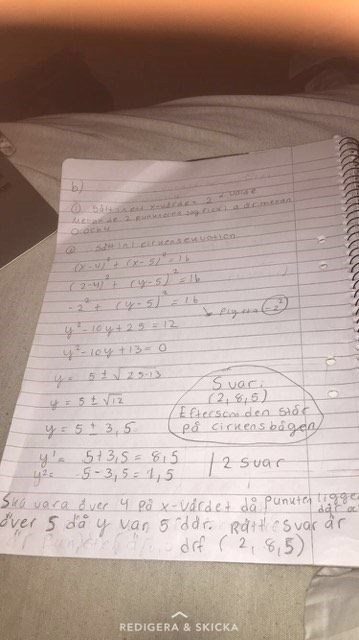 b)
① Sätt in ett x-värde = 2 värde
mellan de 2 punkterna
0 och 4
② Sätt in i cirkelns ekvation
(x-4)² + (x-5)² = 16
(2-4)² + (y-5)² = 16
-2² + (y-5)² = 16
-2²
y² - 10y + 25 = 12
y² - 10y + 13 = 0
y = 5 ± √25-13
y = 5 ± √12
y = 5 ± 3,5
y¹ = 5+3,5 = 8,5
y² = 5-3,5 = 1,5
Svar:
(2,8,5)
Eftersom den står
på cirkelsbågen
2 svar
Ska vara över 4 på x-värdet då punkten ligger
över 5 då y var 5 där. Rätt svar är
drf (2, 8,5)
REDIGERA & SKICKA